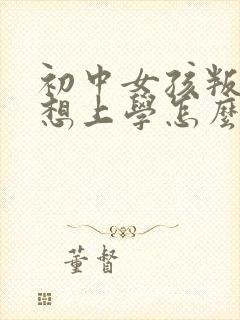 初中女孩叛
想上學怎麼
董督